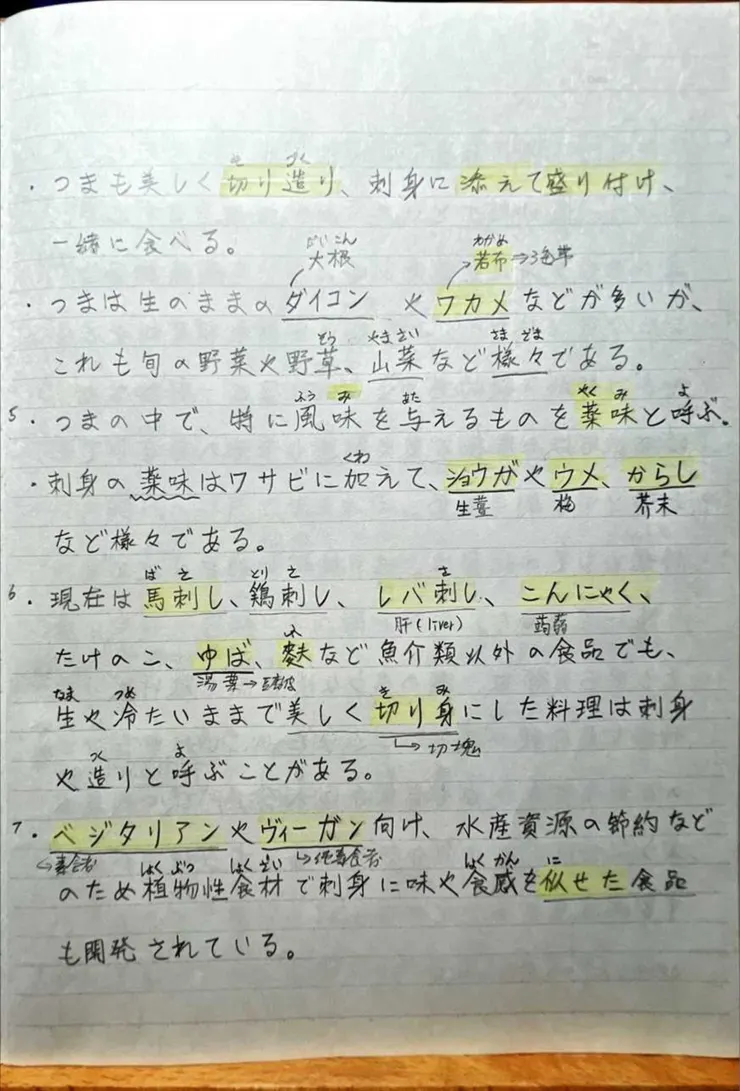 き づく
・つまも美しく切り造り、刺身に添えて盛り付け、
一緒に食べる。
だいこん わかめ
大根 若布
・つまは生のままのダイコン やワカメなどが多いが、
そう やまさい さまざま
これも旬の野菜や野草、山菜など様々である。
ふうみ あた やくみ よ
5・つまの中で、特に風味を与えるものを薬味と呼ぶ。
くわ
・刺身の薬味はワサビに加えて、ショウガやウメ、からし
生薑 梅 芥末
など様々である。
ばさ とりさ さ
6・現在は馬刺し、鶏刺し、レバ刺し、こんにゃく、
肝(liver) 蒟蒻
ふ
たけのこ、ゆば、麩など魚介類以外の食品でも、
湯葉→
なま つめ き み
生や冷たいままで美しく切り身にした料理は刺身
→切塊
つく よ
や造りと呼ぶことがある。
7・ベジタリアンやヴィーガン向け、水産資源の節約など
→素食者 →純素食者
しょくぶつ しょくざい しょくかん に
のため植物性食材で刺身に味や食感を似せた食品
も開発されている。